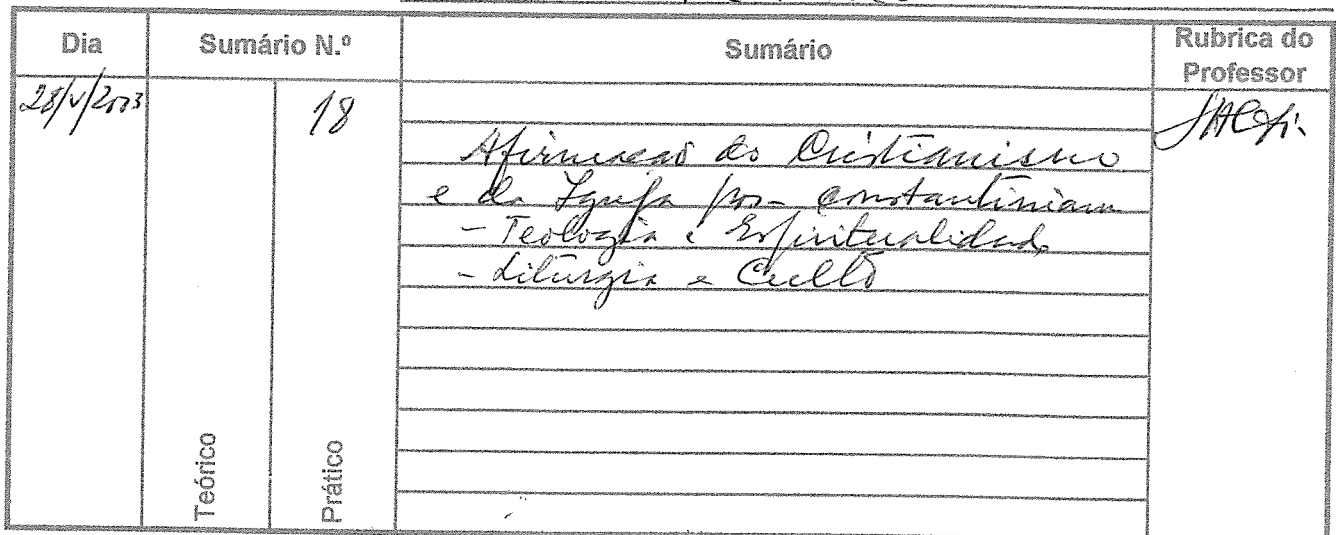 Dia Sumário N.º Sumário Rubrica do Professor
28/V/2003 18
Afirmação do Cristianismo
e da Igreja pós-constantiniana
- Teologia e Espiritualidade
- Liturgia e Culto
Teórico Prático